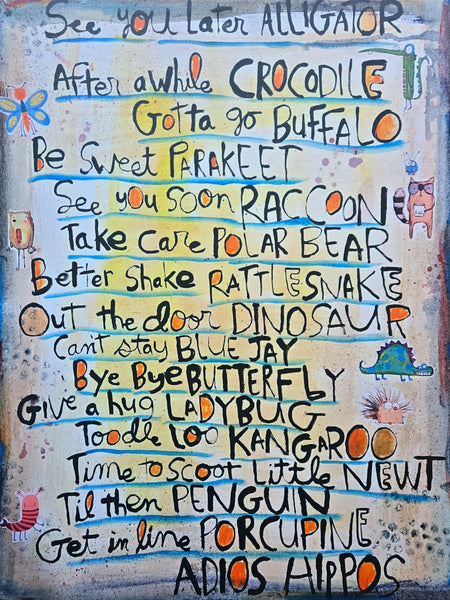 See you Later ALLIGATOR
After a while CROCODILE
Gotta go BUFFALO
Be Sweet PARAKEET
See you soon RACCOON
Take Care POLAR BEAR
Better Shake RATTLESNAKE
Out the door DINOSAUR
Can't stay BLUE JAY
Bye Bye BUTTERFLY
Give a hug LADYBUG
Toodle loo KANGAROO
Time to scoot Little NEWT
Til then PENGUIN
Get in line PORCUPINE
ADIOS HIPPOS